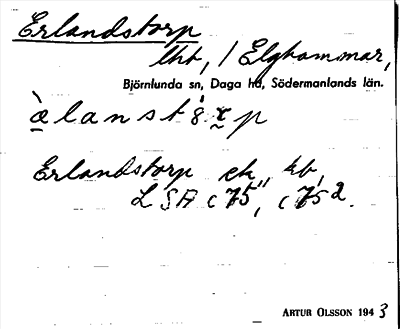 Erlandstorp
lht, / Elghammar,
Björnlunda sn, Daga hd, Södermanlands län.
Erlandstorp ek kb,
LSA c 75",
ARTUR OLSSON 1943